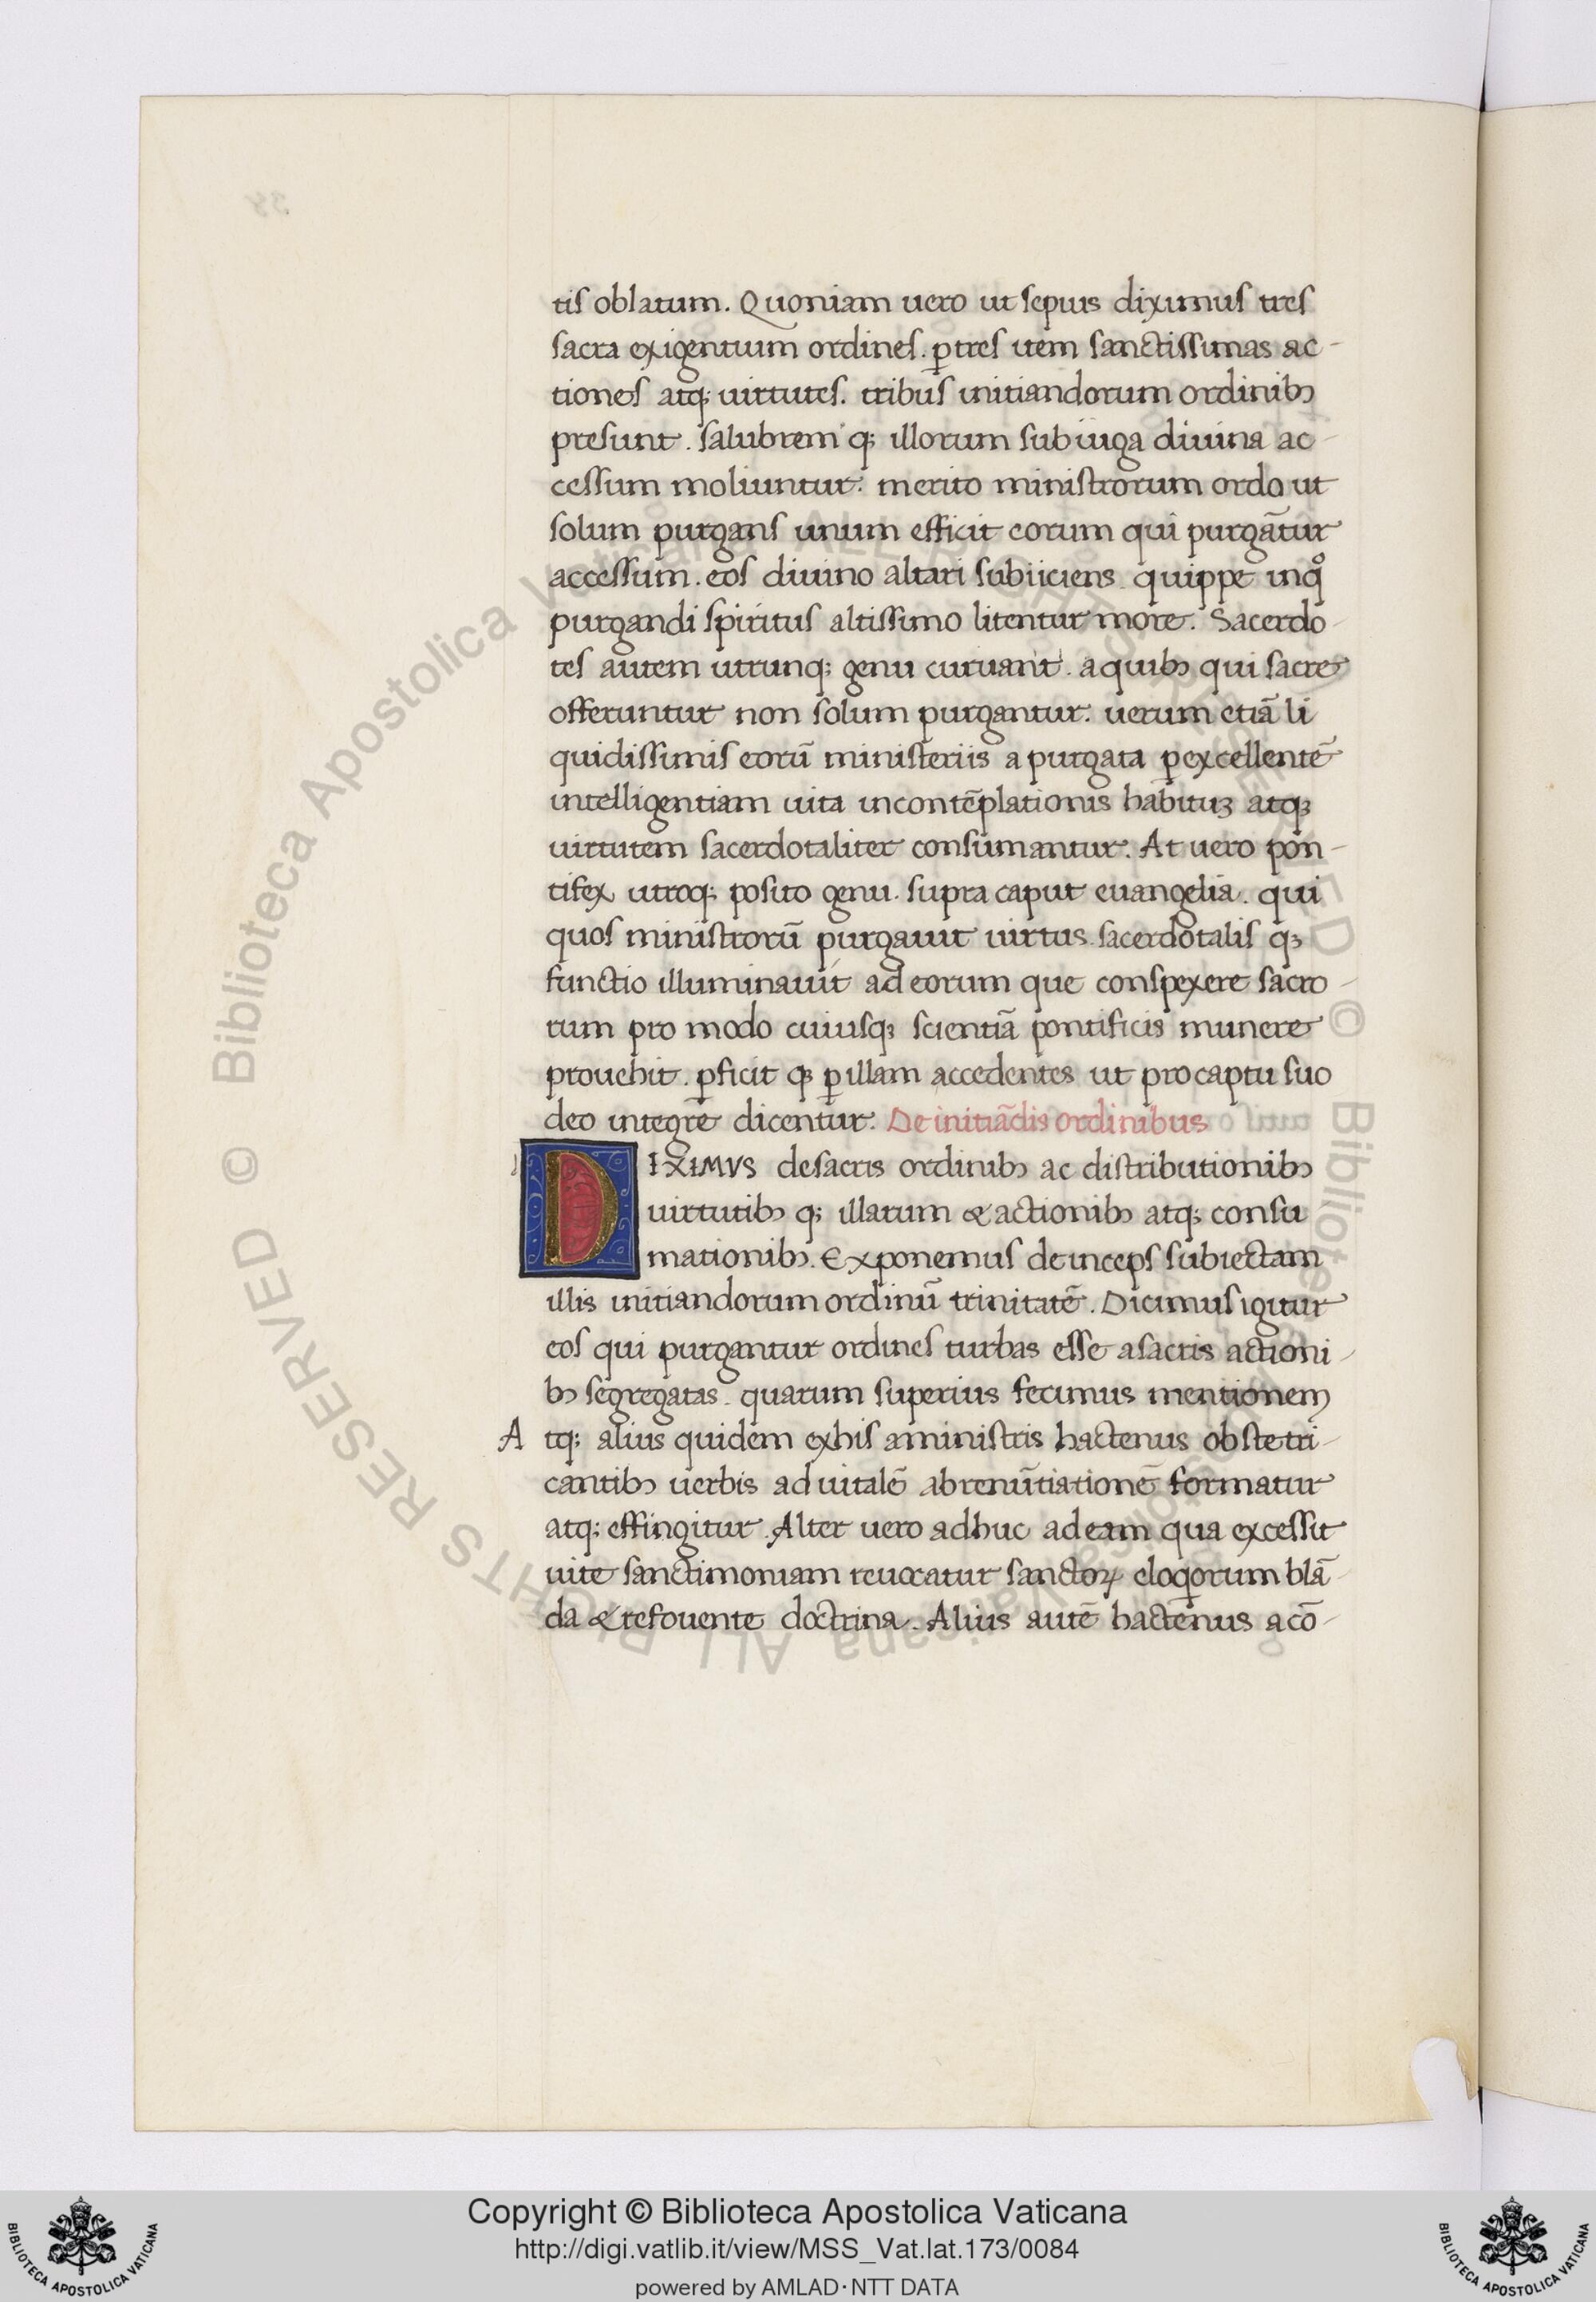 tis oblatum. Quoniam uero ut sepius diximus tres
sacra exigentium ordines. ꝑ tres item sanctissimas ac-
tiones atq; uirtutes. tribus initiandorum ordinibꝫ
presunt. salubrem q; illorum sub iuga diuina ac-
cessum moliuntur: merito ministrorum ordo ut
solum purgans unum efficit eorum qui purgātur
accessum. eos diuino altari subiiciens. quippe in qͦ
purgandi spiritus altissimo litentur more. Sacerdo-
tes autem utrunq; genu curuant. a quibꝫ qui sacre
offeruntur non solum purgantur. uerum etiā li
quidissimis eorū ministeriis a purgata ꝑ excellentē
intelligentiam uita in contēplationis habituꝫ atqꝫ
uirtutem sacerdotaliter consumantur. At uero pon-
tifex utroq; posito genu. supra caput euangelia. qui
quos ministrorū purgauit uirtus. sacerdotalis qꝫ
functio illuminauit ad eorum que conspexere sacro-
rum pro modo cuiusqꝫ scientiā pontificis munere
prouehit. ꝑficit qꝫ ꝑ illam accedentes ut pro captu suo
deo integre dicentur. De initiādis ordinibus
DIXIMVS de sacris ordinibꝫ ac distributionibꝫ
uirtutibꝫ q; illarum & actionibꝫ atq; consu
mationibꝫ. Exponemus deinceps subiectam
illis initiandorum ordinū trinitatē. Dicimus igitur
eos qui purgantur ordines turbas esse a sacris actioni-
bꝫ segregatas. quarum superius fecimus mentionem
Atq; alius quidem ex his a ministris hactenus obstetri-
cantibꝫ uerbis ad uitalē abrenūtiationē formatur
atq; effingitur. Alter uero adhuc ad eam qua excessit
uite sanctimoniam reuocatur sanctoꝝ eloqorum blā-
da & refouente doctrina. Alius autē hactenus a cō-
© Biblioteca Apostolica Vaticana ALL RIGHTS RESERVED
© Biblioteca Apostolica Vaticana ALL RIGHTS RESERVED
Copyright © Biblioteca Apostolica Vaticana
http://digi.vatlib.it/view/MSS_Vat.lat.173/0084
powered by AMLAD·NTT DATA
BIBLIOTECA APOSTOLICA VATICANA
BIBLIOTECA APOSTOLICA VATICANA